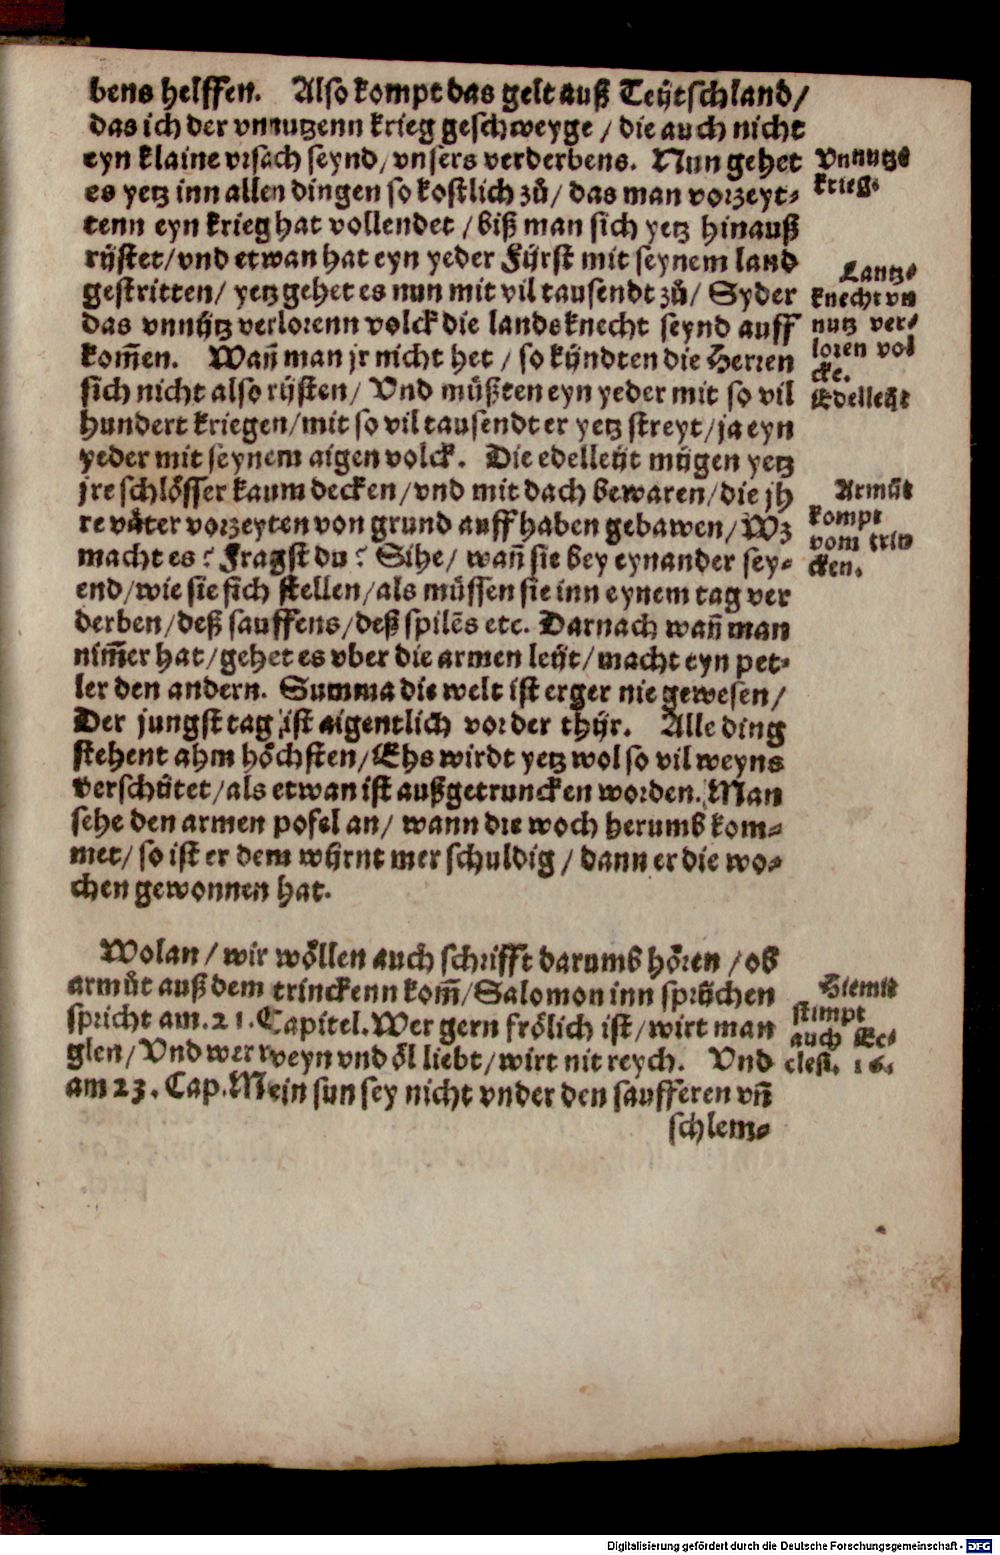 bens helffen. Also kompt das gelt auß Teÿtschland/
das ich der vnnutzenn krieg geschweyge / die auch nicht
eyn klaine vrsach seynd/vnsers verderbens. Nun gehet
es yetz inn allen dingen so kostlich zů/ das man vorzeyt-
tenn eyn krieg hat vollendet /biß man sich yetz hinauß
rÿstet/vnd etwan hat eyn yeder Fÿrst mit seynem land
gestritten/ yetz gehet es nun mit vil tausendt zů/ Syder
das vnnÿtz verlorenn volck die landsknecht seynd auff
kom̄en. Wan̄ man jr nicht het / so kÿndten die Herren
sich nicht also rÿsten/ Vnd můßten eyn yeder mit so vil
hundert kriegen/mit so vil tausendt er yetz streyt/ja eyn
yeder mit seynem aigen volck. Die edelleÿt mÿgen yetz
jre schlösser kaum decken/vnd mit dach bewaren/die jh
re våter vorzeyten von grund auff haben gebawen/Wz
macht es? Fragst du? Sihe/ wan̄ sie bey eynander sey-
end/wie sie sich stellen/als můssen sie inn eynem tag ver
derben/deß sauffens/deß spilēs etc. Darnach wan̄ man
nim̄er hat/gehet es vber die armen leÿt/macht eyn pet-
ler den andern. Summa die welt ist erger nie gewesen/
Der jungst tag ist aigentlich vor der thÿr. Alle ding
stehent ahm höchsten/Ehs wirdt yetz wol so vil weyns
verschÿtet/als etwan ist außgetruncken worden. Man
sehe den armen pofel an/ wann die woch herumb kom-
met/ so ist er dem wÿrnt mer schuldig / dann er die wo-
chen gewonnen hat.
Wolan/wir wöllen auch schrifft darumb hören /ob
armůt auß dem trinckenn kom̄/Salomon inn sprÿchen
spricht am.21.Capitel.Wer gern frölich ist/wirt man
glen/Vnd wer weyn vnd öl liebt/wirt nit reych. Vnd
am 23. Cap.Mein sun sey nicht vnder den saufferen vn̄
schlem-
Vnnutze
krieg.
Lantz-
knecht vn
nutz ver-
loren vol
cke.
Edelleÿt
Armůt
kompt
vom trin
cken.
Hiemit
stimpt
auch Ec-
clesi. 16.
Digitalisierung gefördert durch die Deutsche Forschungsgemeinschaft - DFG